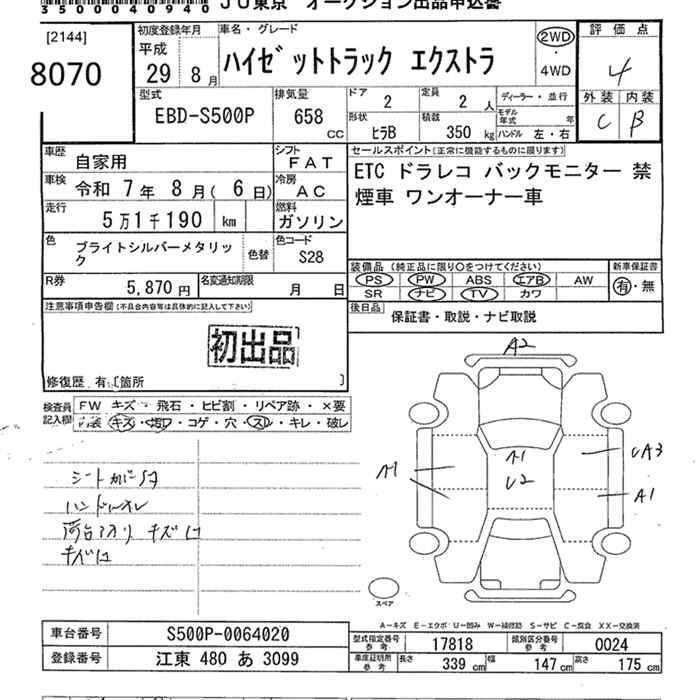 35000400940
JU東京 オークション出品申込書
[2144]
8070
初度登録年月
平成
29年 8月
車名・グレード
ハイゼットトラック エクストラ
2WD
・
4WD
評価点
4
外装 内装
C B
型式
EBD-S500P
排気量
658
CC
ドア
2
定員
2人
ディーラー・並行
モデル年式 年
形状
ヒラB
積載
350 kg
ハンドル 左・右
車歴
自家用
シフト
FAT
車検
令和 7年 8月( 6日)
冷房
AC
走行
5万1千190 km
燃料
ガソリン
色
ブライトシルバーメタリック
色替
色コード
S28
R券
5,870円
名変通知期限
月 日
セールスポイント(正常に機能するものに限ります)
ETC ドラレコ バックモニター 禁
煙車 ワンオーナー車
装備品(純正品に限り○をつけてください)
PS PW ABS エアB AW
SR ナビ TV カワ
新車保証書
有・無
後日品
保証書・取説・ナビ取説
注意事項申告欄(不具合内容等は具体的に記入して下さい)
初出品
修復歴 有〔箇所 〕
検査員
記入欄
FW キズ・飛石・ヒビ割・リペア跡・×要
内装 キズ・汚れ・コゲ・穴・スレ・キレ・破レ
シートカバー
ハンドル
荷台アオリ キズ
キズ
A2
A1
A1
U2
UA3
A1
スペア
A-キズ E-エクボ U-凹み W-補修跡 S-サビ C-腐食 XX-交換済
車台番号
S500P-0064020
登録番号
江東 480 あ 3099
型式指定番号
参考
17818
類別区分番号
参考
0024
車庫証明所
参考
長さ
339 cm
幅
147 cm
高さ
175 cm